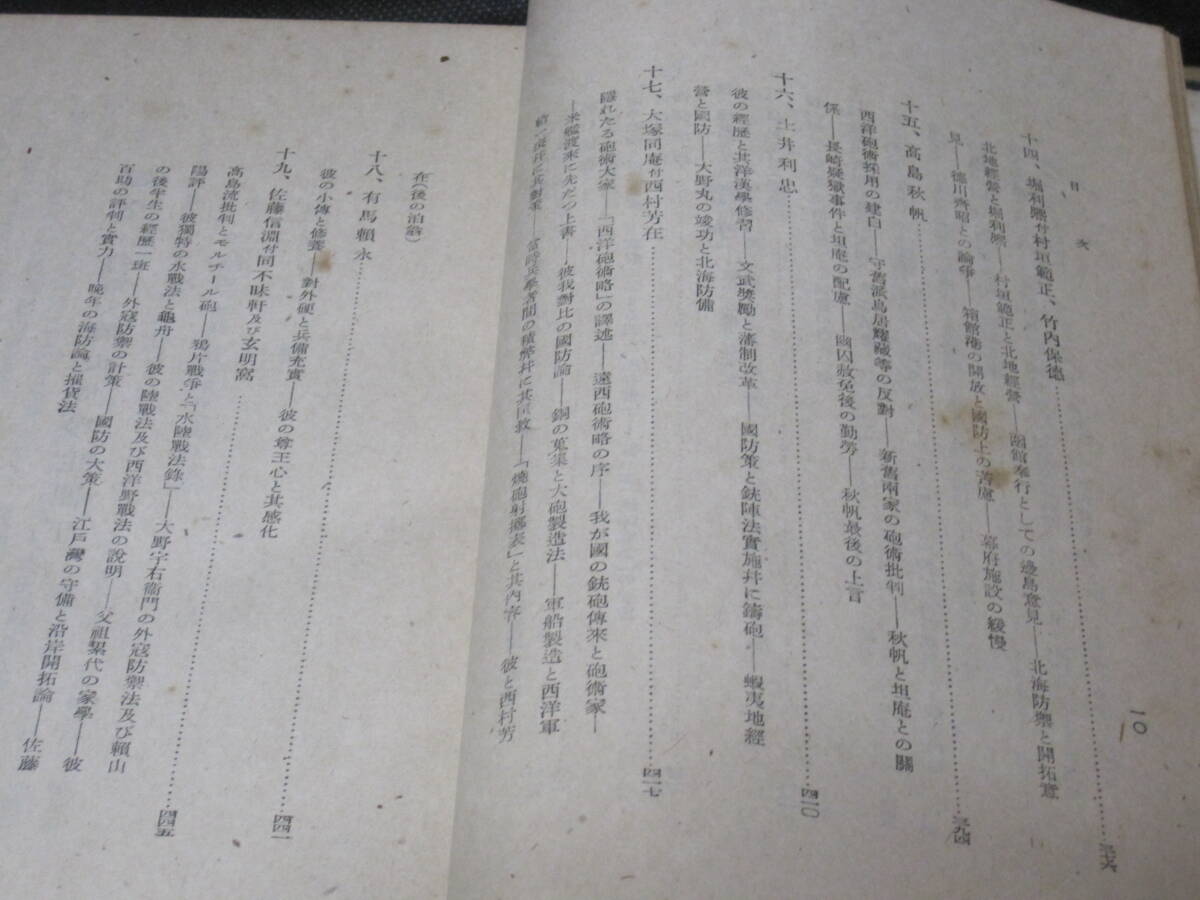 目次
一〇
十四、堀利熙付村垣範正、竹内保德
北地經營と堀利熙――村垣範正と北地經營――函館奉行としての邊島意見――北海防禦と開拓意
見――德川齊昭との論爭――箱館港の開放と國防上の苦慮――幕府施設の緩慢
十五、高島秋帆
西洋砲術採用の建白――守舊派鳥居耀藏等の反對――新舊兩家の砲術批判――秋帆と坦庵との關
係――長崎疑獄事件と坦庵の配慮――幽囚赦免後の勤勞――秋帆最後の上言
十六、土井利忠 四一〇
彼の經歷と共洋漢學修習――文武奬勵と藩制改革――國防策と銃陣法實施幷に鑄砲――蝦夷地經
營と國防――大野丸の竣功と北海防備
十七、大塚同庵付西村芳在 四一七
隱れたる砲術大家――「西洋砲術略」の譯述――遠西砲術略の序――我が國の銃砲傳來と砲術家――
米艦渡來に先だつ上書――彼我對比の國防論――銅の蒐集と大砲製造法――軍船製造と西洋軍
當時兵學者間の積弊幷に其匡救――「燒砲射擲表」と其內容――彼と西村芳
在(後の泊翁)
十八、有馬賴永 四四一
彼の小傳と修養――對外硬と兵備充實――彼の尊王心と其感化
十九、佐藤信淵付同不昧軒及び玄明窩 四四五
高島流批判とモルチール砲――鴉片戰爭と「水陸戰法錄」――大野宇右衞門の外寇防禦法及び賴山
陽評――彼獨特の水戰法と龜舟――彼の陸戰法及び西洋野戰法の說明――父祖累代の家學――彼
の後半生の經歷一班――外寇防禦の計策――國防の大策――江戶灣の守備と沿岸開拓論――佐藤
百助の評判と實力――晚年の海防論と摧貨法